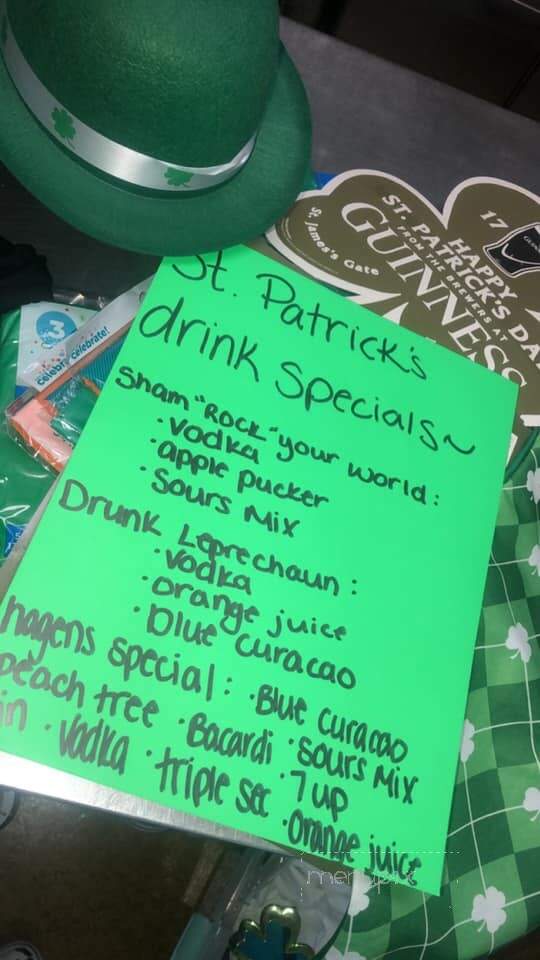 St. Patrick's
drink specials~
Sham "Rock" your world:
·vodka
·apple pucker
·sours mix
Drunk Leprechaun:
·vodka
·orange juice
·blue curacao
hagens special: ·Blue curacao
peach tree ·Bacardi ·sours mix
in ·vodka ·triple sec ·7up
·orange juice
HAPPY
ST. PATRICK'S DA
FROM THE BREWERS AT
GUINNESS
St. James's Gate
17
3
celebrate!